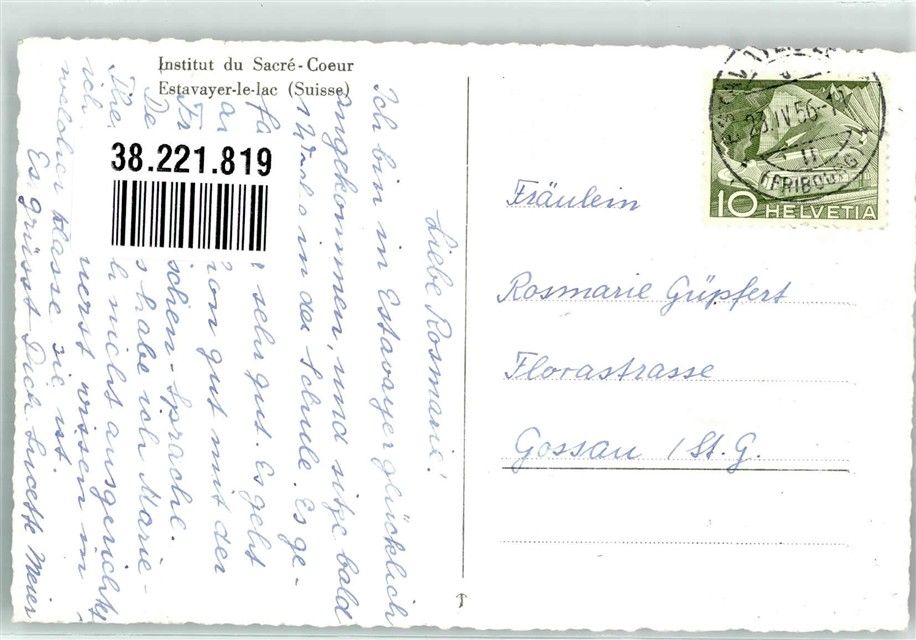 Institut du Sacré-Coeur
Estavayer-le-lac (Suisse)
38.221.819
Liebe Rosmarie!
Ich bin in Estavayer glücklich
angekommen, und sitze bald
1 Woche in der Schule. Es ge-
sehr gut. Es geht
gut mit der
schen-Sprache.
habe ich Marie-
nicht ausgerichtet
ich wissen in
welcher Klasse sie ist.
Es grüsst Dich Lucette Meier
23.IV.56
(FRIBOURG)
10 HELVETIA
Fräulein
Rosmarie Güpfert
Florastrasse
Gossau / St. G.